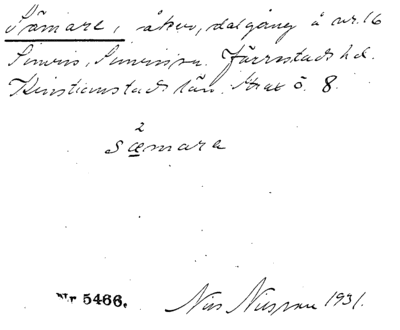 Sämare, åker, dalgång å nr. 16
Simris, Simrissn. Järrestads hd.
Kristianstads län. Strax ö. 8.
2
sæmara
Nr 5466. Nils Nilsson 1931.